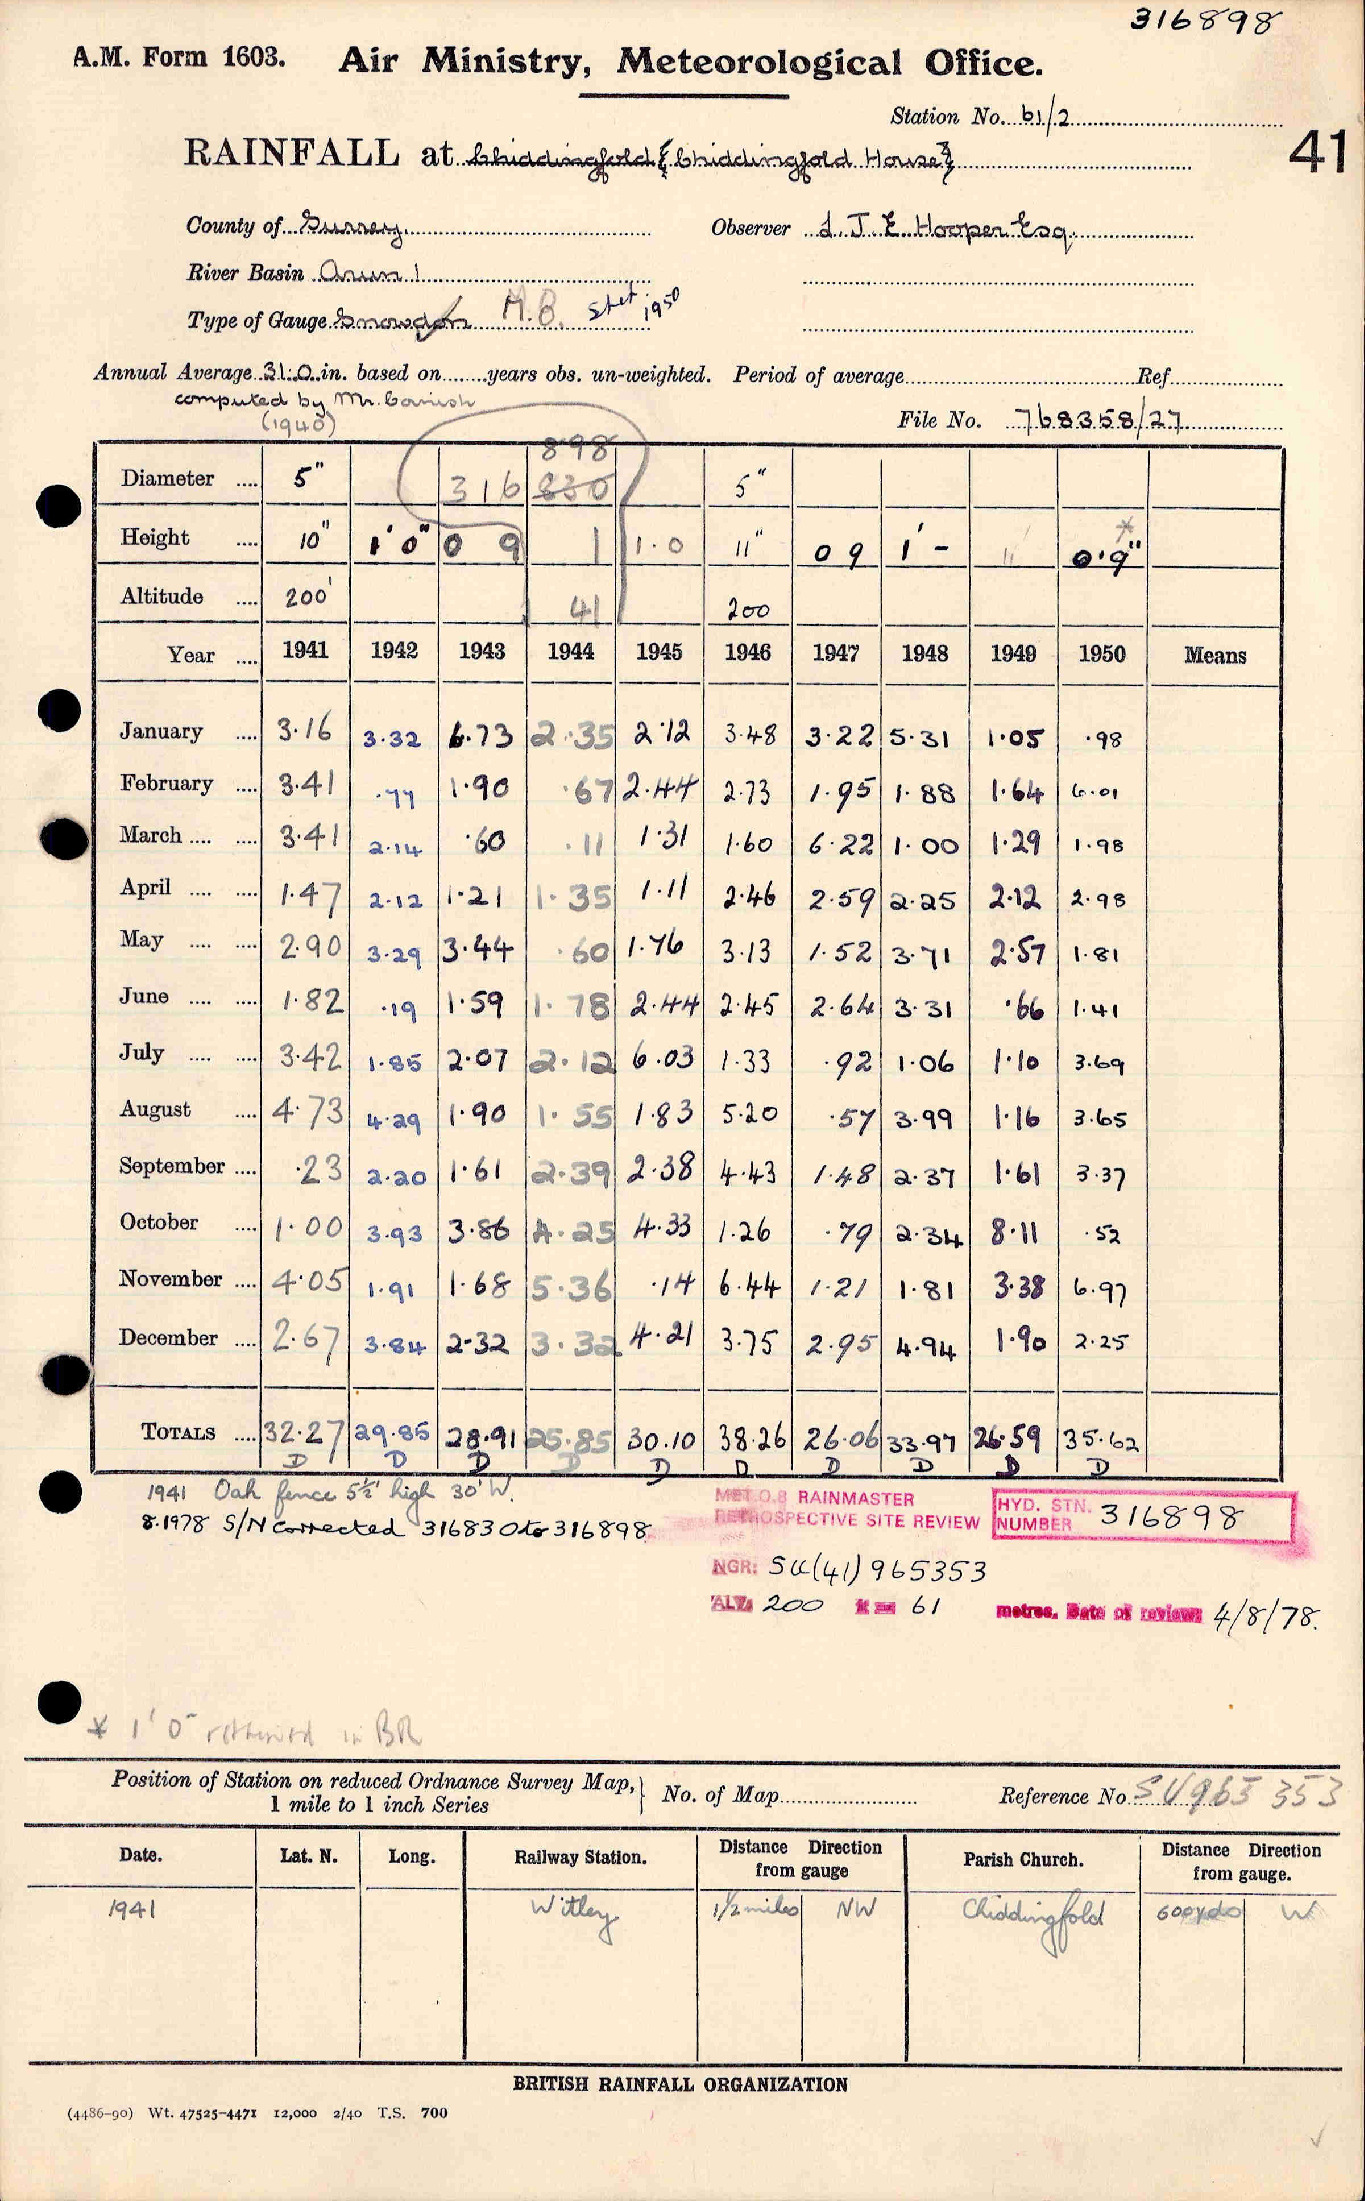 316898
A.M. Form 1603. Air Ministry, Meteorological Office.
Station No. 61/2
41
RAINFALL at Chiddingfold {Chiddingfold House}
County of Surrey Observer L.J.E. Hooper Esq.
River Basin Arun 1
Type of Gauge Snowdon M.B. Stet. 1950
Annual Average 31.0 in. based on ........ years obs. un-weighted. Period of average ........ Ref ........
computed by Mr. Cornish
(1940)
File No. 768358/27
898
Diameter .... 5" 316 830 5"
Height .... 10" 1'0" 0 9 1 1.0 11" 0 9 1'- 11" 0'9" *
Altitude .... 200' 41 200
Year .... 1941 1942 1943 1944 1945 1946 1947 1948 1949 1950 Means
January .... 3.16 3.32 6.73 2.35 2.12 3.48 3.22 5.31 1.05 .98
February .... 3.41 .77 1.90 .67 2.44 2.73 1.95 1.88 1.64 6.01
March .... .... 3.41 2.14 .60 .11 1.31 1.60 6.22 1.00 1.29 1.98
April .... .... 1.47 2.12 1.21 1.35 1.11 2.46 2.59 2.25 2.12 2.98
May .... .... 2.90 3.29 3.44 .60 1.76 3.13 1.52 3.71 2.57 1.81
June .... .... 1.82 .19 1.59 1.78 2.44 2.45 2.64 3.31 .66 1.41
July .... .... 3.42 1.85 2.07 2.12 6.03 1.33 .92 1.06 1.10 3.69
August .... 4.73 4.29 1.90 1.55 1.83 5.20 .57 3.99 1.16 3.65
September .... .23 2.20 1.61 2.39 2.38 4.43 1.48 2.37 1.61 3.37
October .... 1.00 3.93 3.86 4.25 4.33 1.26 .79 2.34 8.11 .52
November .... 4.05 1.91 1.68 5.36 .14 6.44 1.21 1.81 3.38 6.97
December .... 2.67 3.84 2.32 3.32 4.21 3.75 2.95 4.94 1.90 2.25
TOTALS .... 32.27 29.85 28.91 25.85 30.10 38.26 26.06 33.97 26.59 35.62
D D D D D D D D D D
1941 Oak fence 5½' high 30' W.
8.1978 S/N corrected 316830 to 316898
MET.O.8 RAINMASTER
RETROSPECTIVE SITE REVIEW
HYD. STN. NUMBER 316898
NGR: SU(41) 965353
ALT. 200 ft = 61 metres. Date of review: 4/8/78.
* 1'0" returned in BR
Position of Station on reduced Ordnance Survey Map, } No. of Map ........ Reference No. SU 965 353
1 mile to 1 inch Series
Date. Lat. N. Long. Railway Station. Distance Direction from gauge Parish Church. Distance Direction from gauge.
1941 Witley 1½ miles NW Chiddingfold 600 yds W
BRITISH RAINFALL ORGANIZATION
(4486-90) Wt. 47525-4471 12,000 2/40 T.S. 700